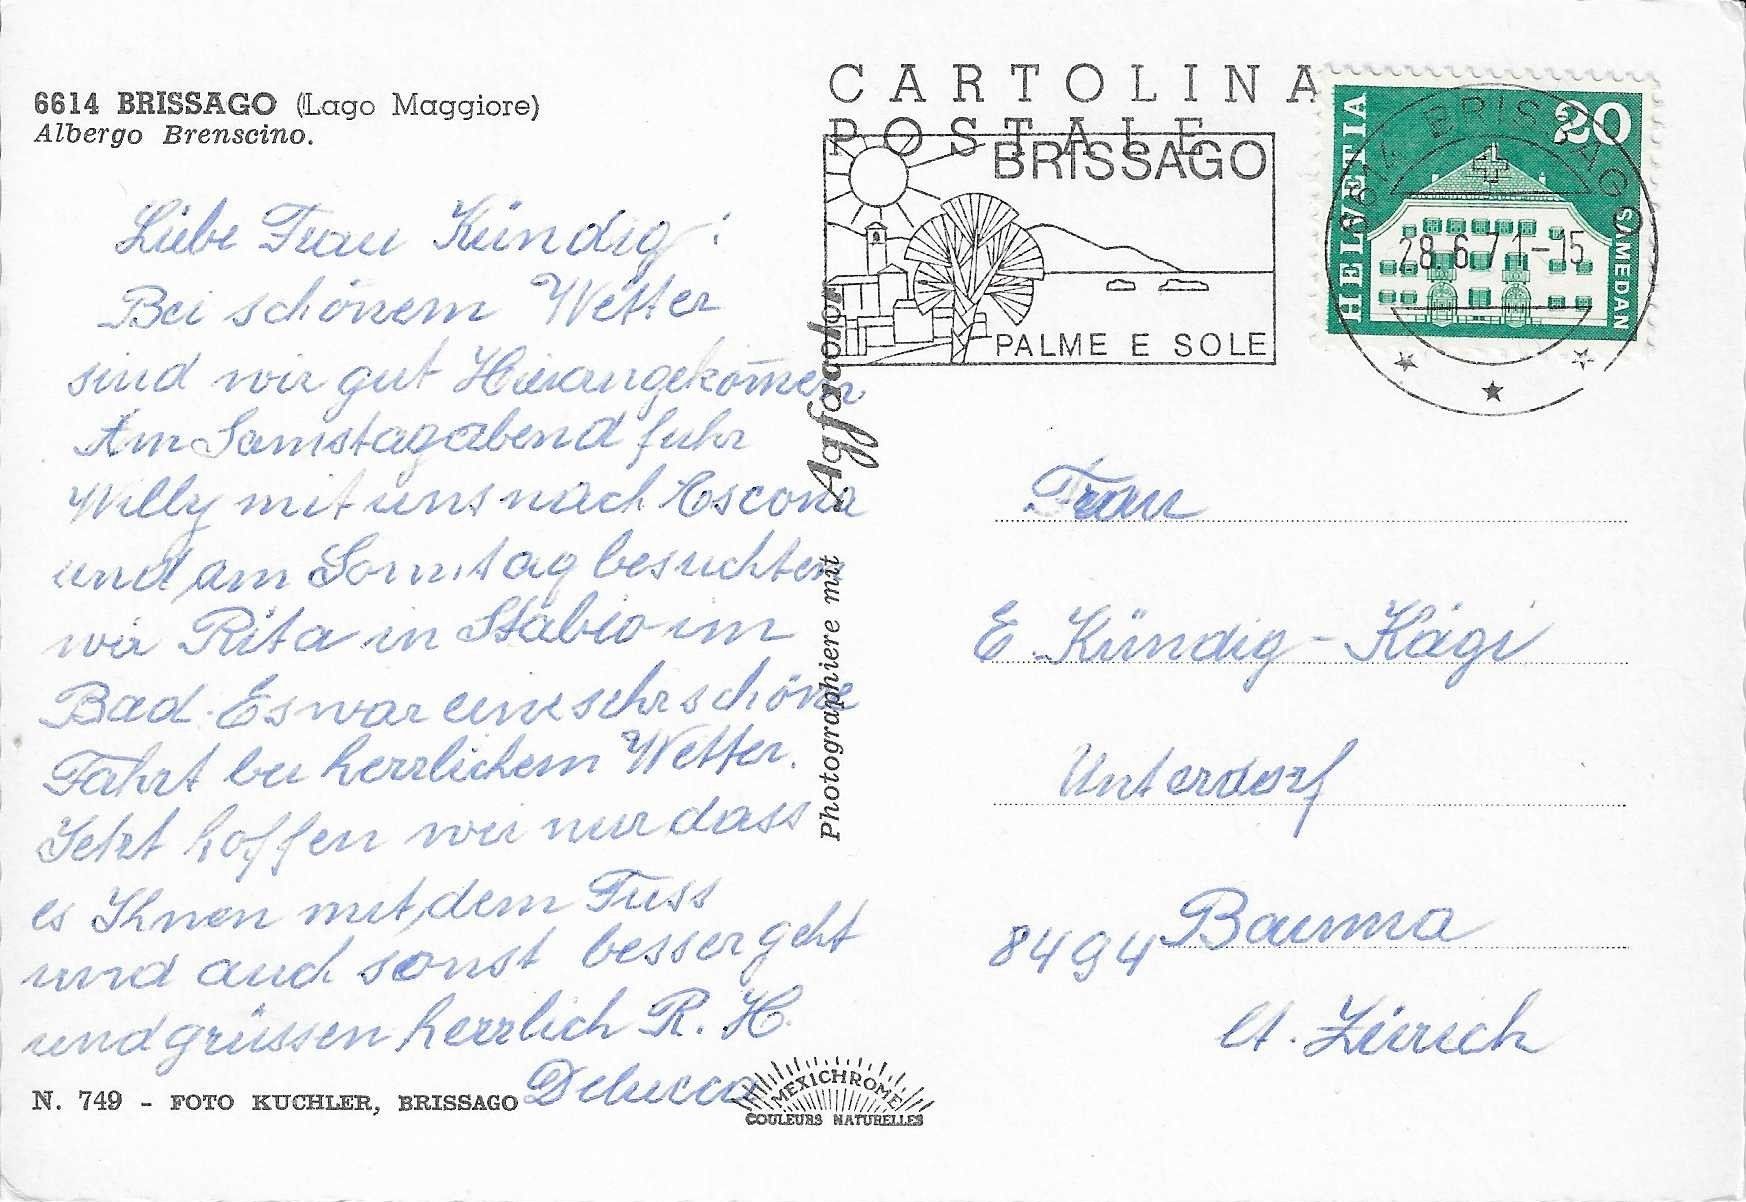 6614 BRISSAGO (Lago Maggiore)
Albergo Brenscino.
Liebe Frau Kündig!
Bei schönem Wetter
sind wir gut Hierangekom̄en.
Am Samstagabend fuhr
Willy mit uns nach Escona
und am Sonntag besuchten
wir Rita in Stabio im
Bad. Es war eine sehr schöne
Fahrt bei herrlichem Wetter.
Jetzt hoffen wir nur dass
es Ihnen mit dem Fuss
und auch sonst besser geht
und grüssen herrlich R. H.
Delucca
N. 749 - FOTO KUCHLER, BRISSAGO
MEXICHROME
COULEURS NATURELLES
Photographiere mit Agfacolor
CARTOLINA
POSTALE
BRISSAGO
PALME E SOLE
HELVETIA
20
SAMEDAN
6614 BRISSAGO
28.6.71-15
Frau
E. Kündig-Kägi
Unterdorf
8494 Bauma
Ct. Zürich